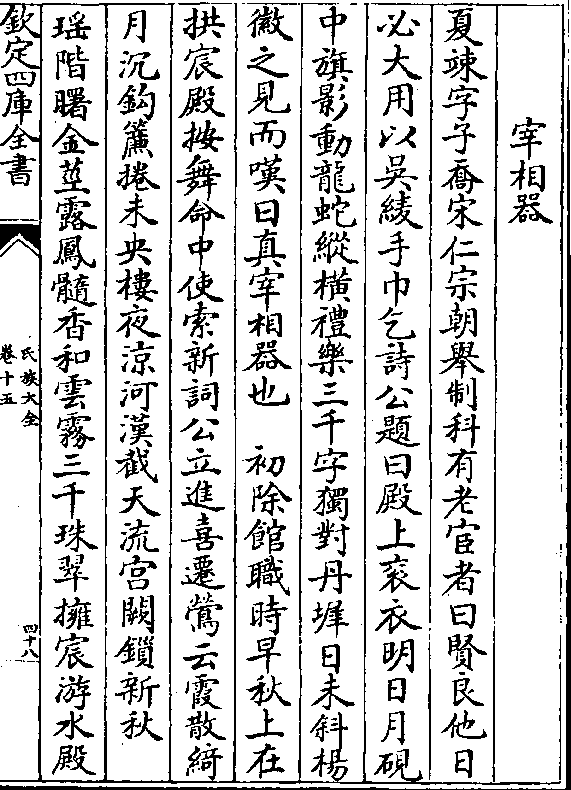 宰相器
夏竦字子喬宋仁宗朝舉制科有老宦者曰賢良他日
必大用以吳綾手巾乞詩公題曰殿上衮衣明日月硯
中旗影動龍蛇縱橫禮樂三千字獨對丹墀日未斜楊
徽之見而嘆曰真宰相器也　初除館職時早秋上在
拱宸殿按舞命中使索新詞公立進喜遷鶯云霞散綺
月沉鈎簾捲未央樓夜凉河漢截天流宫闕鎖新秋
瑶階曙金莖露鳳髓香和雲霧三千珠翠擁宸游水殿
欽定四庫全書
氏族大全
卷十五
四十八